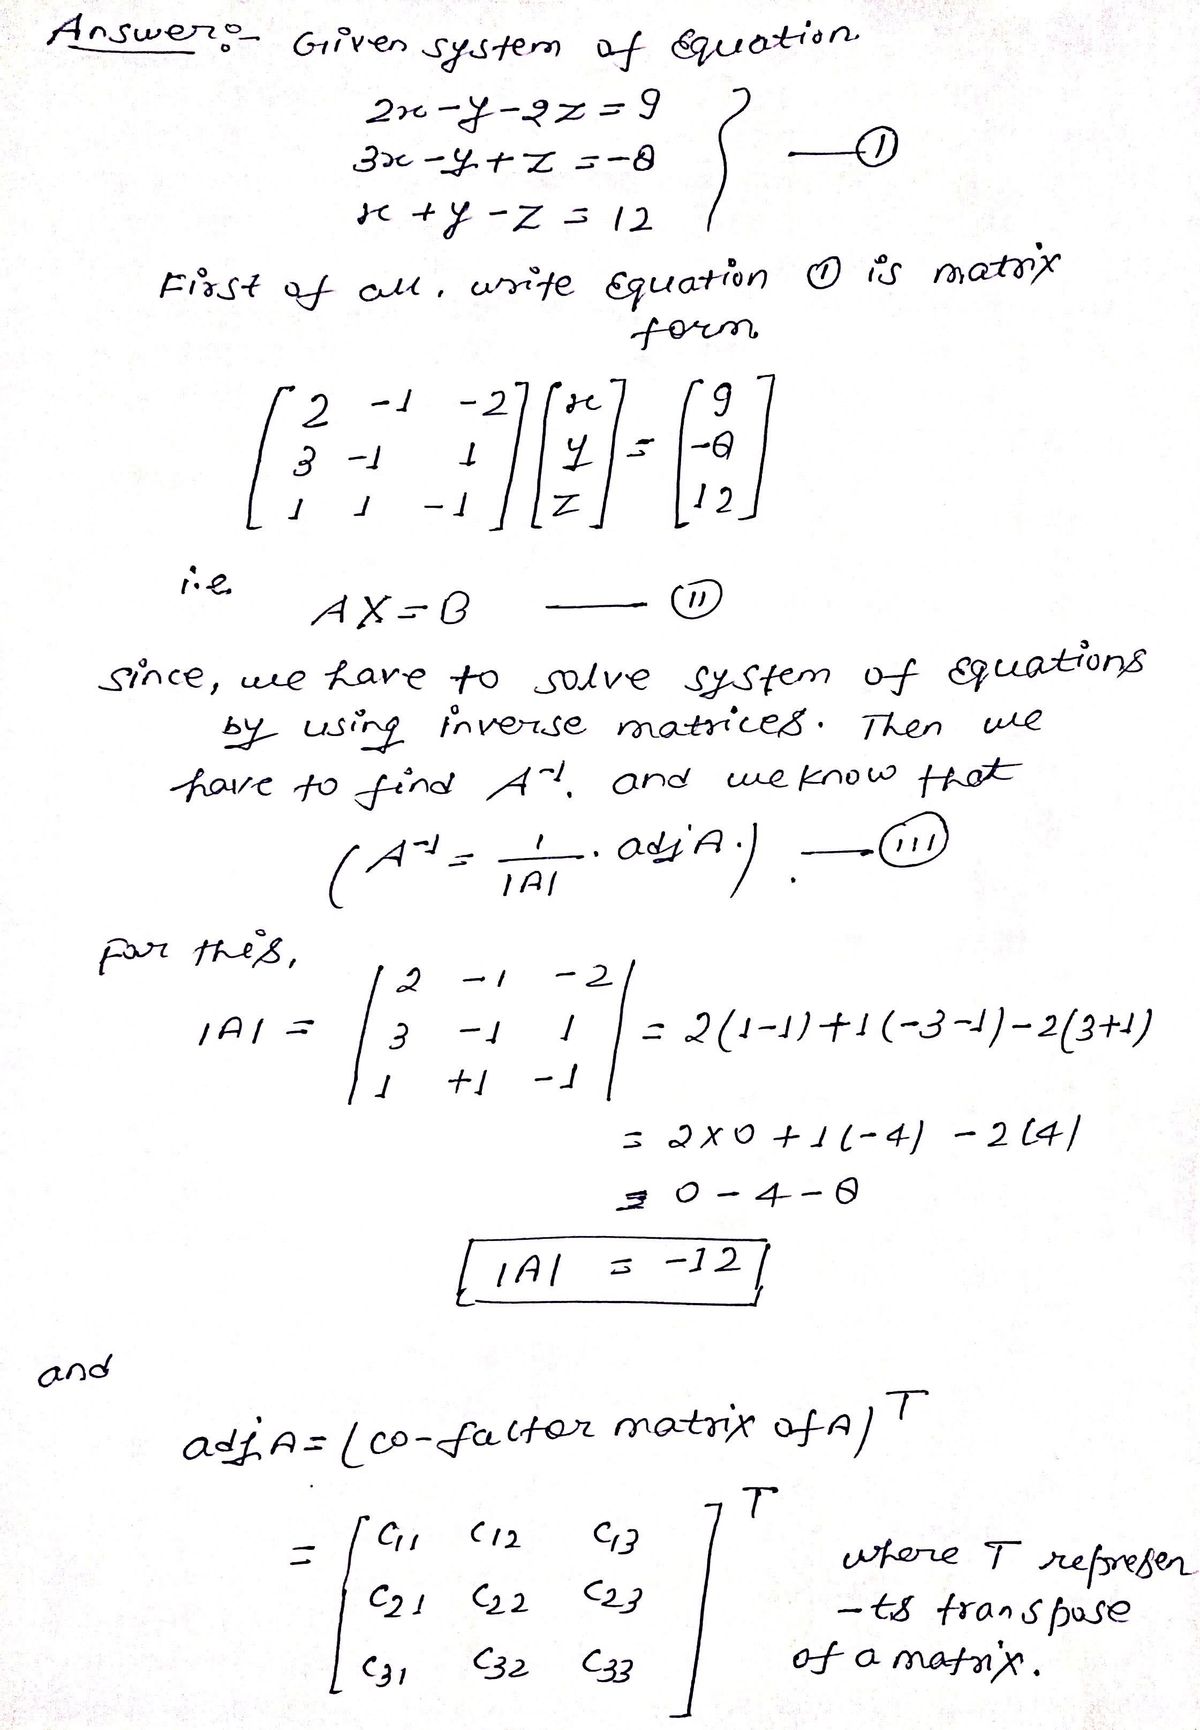 Answer:- Given system of Equation
2x-y-2z=9
3x-y+z=-8
x+y-z=12 } —①
First of all, write Equation ① is matrix
form
[2 -1 -2] [x] = [9]
[3 -1 1] [y] [-8]
[1 1 -1] [z] [12]
i.e
AX=B —(11)
Since, we have to solve system of Equations
by using inverse matrices. Then we
have to find A⁻¹. and we know that
(A⁻¹ = 1/|A| . adjA.) . —(111)
For this,
|A| = |2 -1 -2|
|3 -1 1| = 2(1-1)+1(-3-1)-2(3+1)
|1 +1 -1|
= 2×0+1(-4) -2(4)
= 0-4-8
|A| = -12
and
adjA=(co-factor matrix of A)ᵀ
= [C11 C12 C13]ᵀ
[C21 C22 C23]
[C31 C32 C33]
where T represen
-ts transpose
of a matrix.